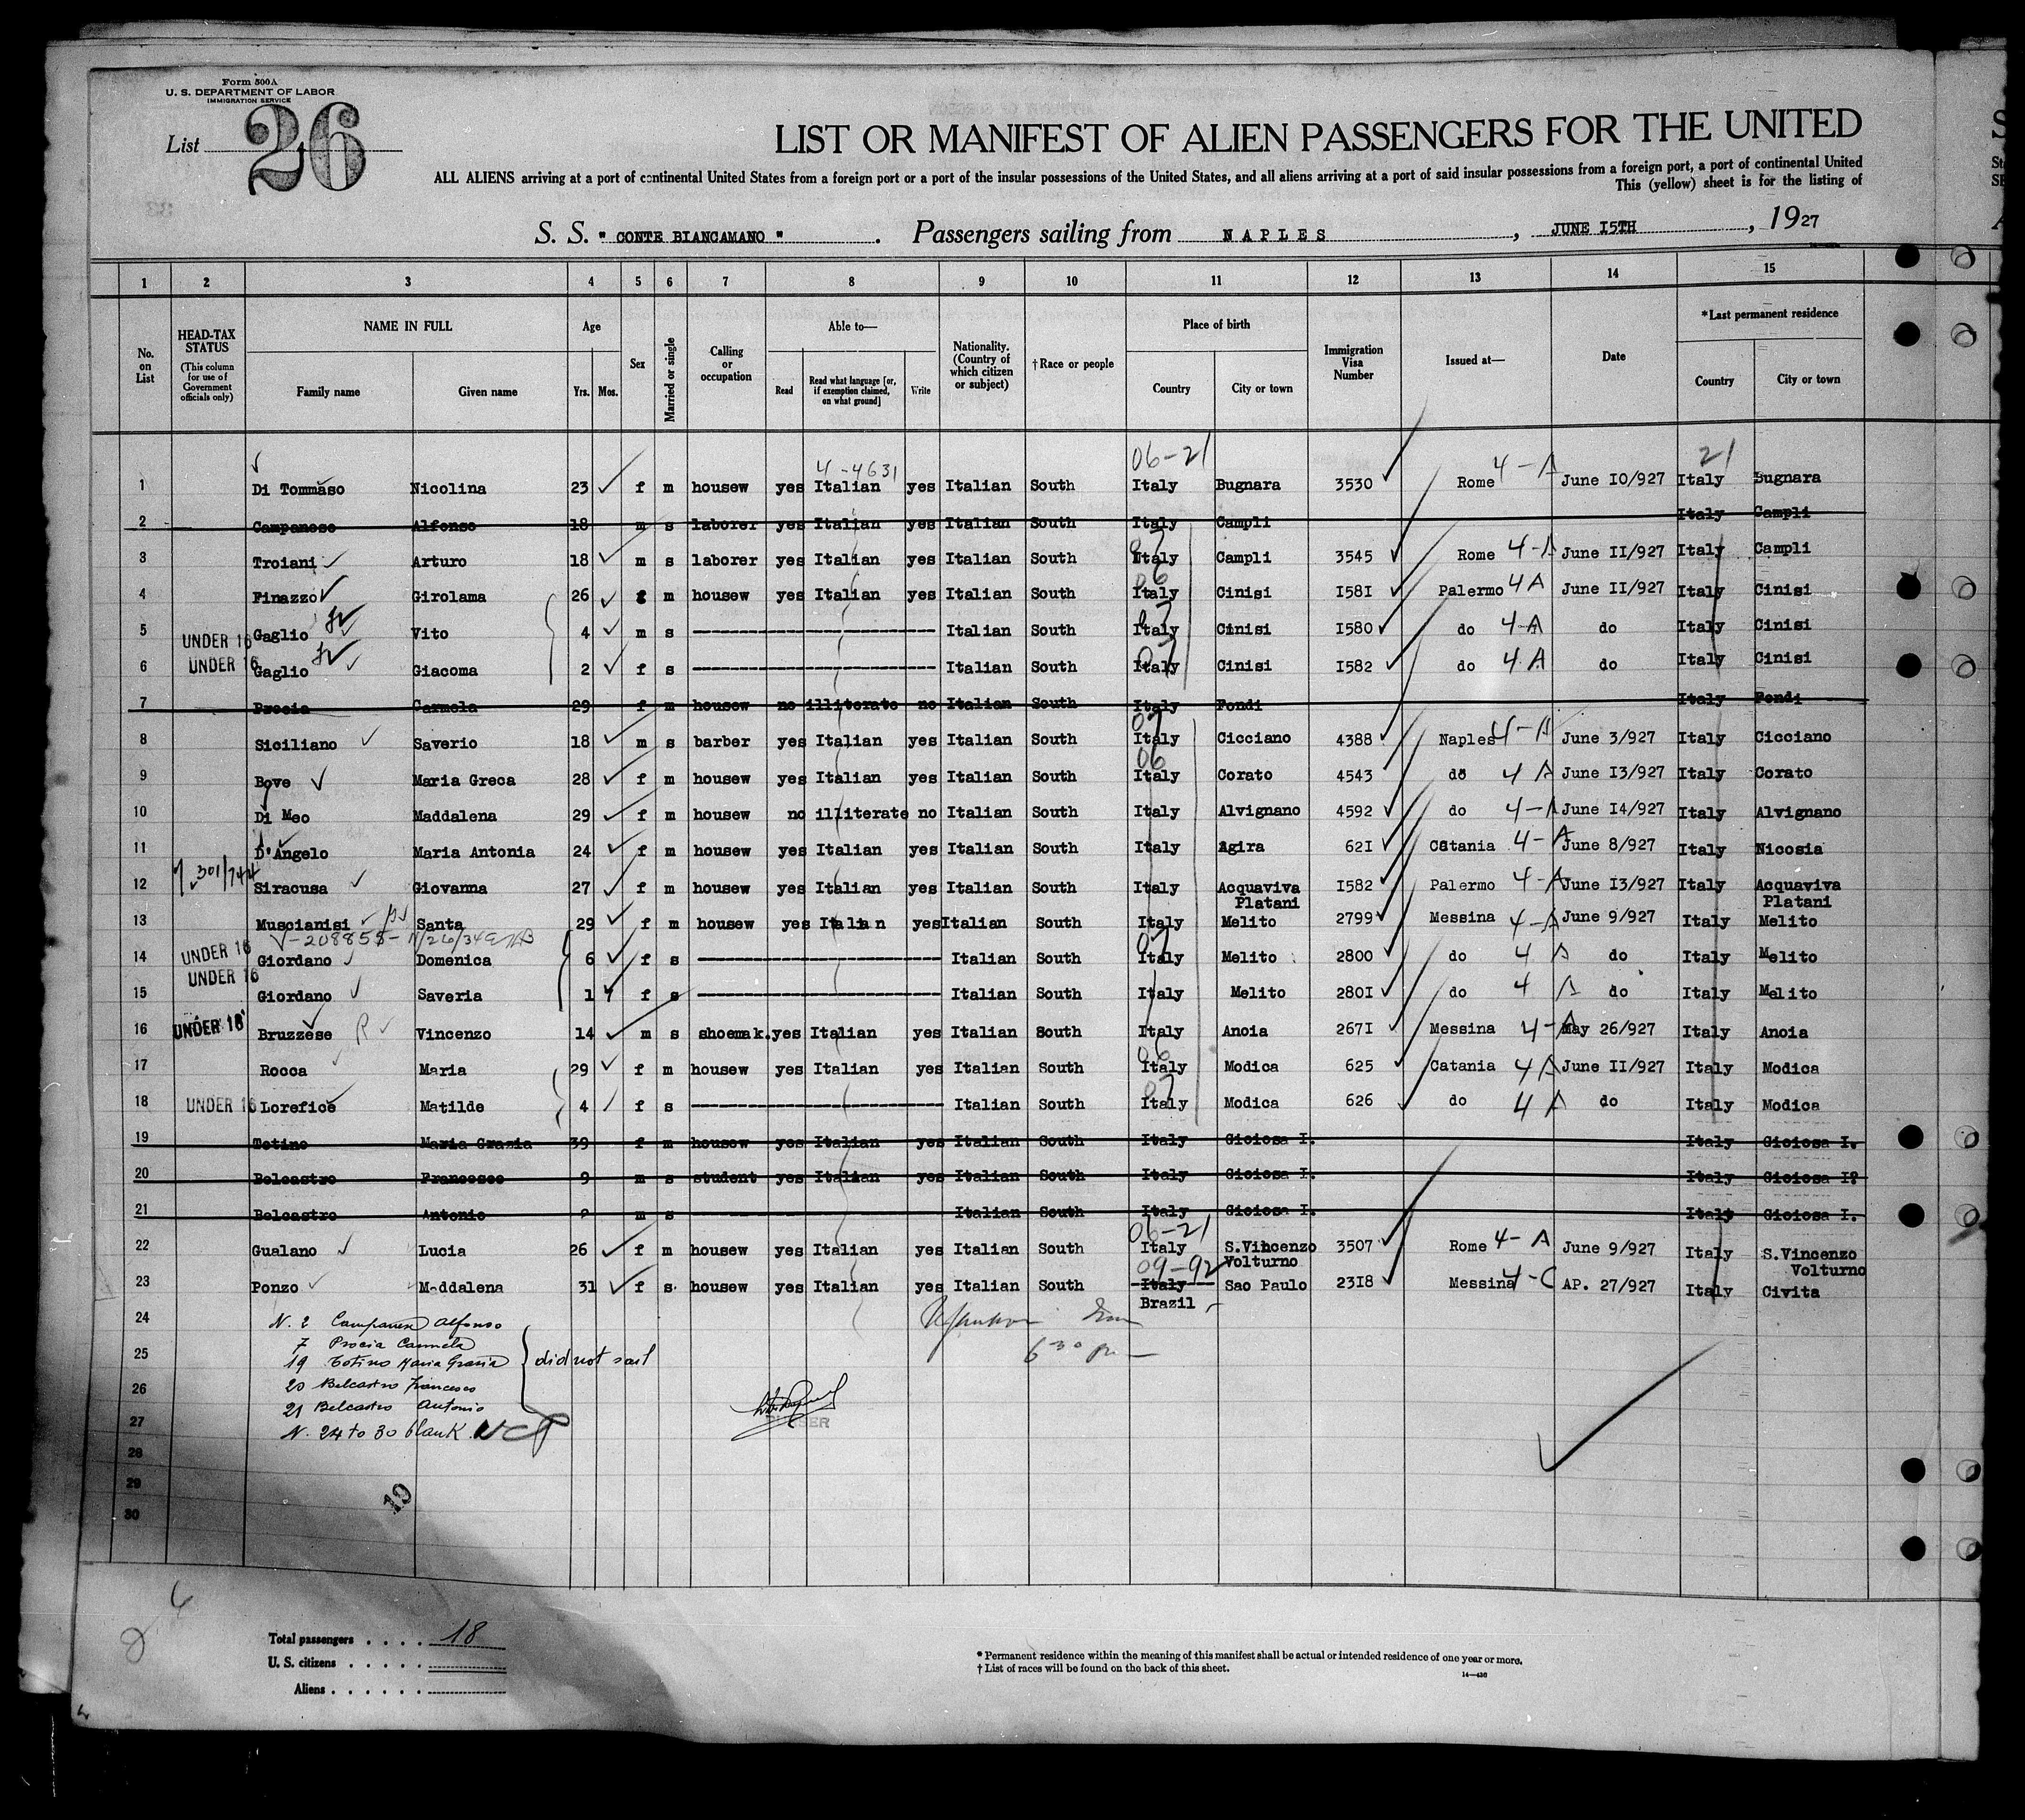 Form 500A
U. S. DEPARTMENT OF LABOR
IMMIGRATION SERVICE
List 26
LIST OR MANIFEST OF ALIEN PASSENGERS FOR THE UNITED
ALL ALIENS arriving at a port of continental United States from a foreign port or a port of the insular possessions of the United States, and all aliens arriving at a port of said insular possessions from a foreign port, a port of continental United
This (yellow) sheet is for the listing of
S. S. " CONTE BIANCAMANO " . Passengers sailing from NAPLES , JUNE I5TH , 1927
1 2 3 4 5 6 7 8 9 10 11 12 13 14 15
No. on List
HEAD-TAX STATUS
(This column for use of Government officials only)
NAME IN FULL
Family name Given name
Age
Yrs. Mos.
Sex
Married or single
Calling or occupation
Able to—
Read
Read what language [or, if exemption claimed, on what ground]
Write
Nationality. (Country of which citizen or subject)
†Race or people
Place of birth
Country City or town
Immigration Visa Number
Issued at—
Date
*Last permanent residence
Country City or town
4-4631 06-21 21
1 Di Tommaso Nicolina 23 f m housew yes Italian yes Italian South Italy Bugnara 3530 Rome 4-A June I0/927 Italy Bugnara
2 Campanese Alfonso 18 m s laborer yes Italian yes Italian South Italy Campli Italy Campli
3 Troiani Arturo 18 m s laborer yes Italian yes Italian South Italy Campli 3545 Rome 4-A June II/927 Italy Campli
06
4 Finazzo Girolama 26 f m housew yes Italian yes Italian South Italy Cinisi I58I Palermo 4A June II/927 Italy Cinisi
07
5 UNDER 16 Gaglio Vito 4 m s Italian South Italy Cinisi I580 do 4-A do Italy Cinisi
6 UNDER 16 Gaglio Giacoma 2 f s Italian South Italy Cinisi I582 do 4A do Italy Cinisi
7 Procia Carmela 29 f m housew no illiterate no Italian South Italy Fondi Italy Fondi
07
8 Siciliano Saverio 18 m s barber yes Italian yes Italian South Italy Cicciano 4388 Naples 4-A June 3/927 Italy Cicciano
06
9 Bove Maria Greca 28 f m housew yes Italian yes Italian South Italy Corato 4543 do 4 A June I3/927 Italy Corato
10 Di Meo Maddalena 29 f m housew no illiterate no Italian South Italy Alvignano 4592 do 4-A June I4/927 Italy Alvignano
11 D'Angelo Maria Antonia 24 f m housew yes Italian yes Italian South Italy Agira 62I Catania 4-A June 8/927 Italy Nicosia
301/744
12 Siracusa Giovanna 27 f m housew yes Italian yes Italian South Italy Acquaviva Platani I582 Palermo 4-A June I3/927 Italy Acquaviva Platani
13 Muscianisi Santa 29 f m housew yes Italian yes Italian South Italy Melito 2799 Messina 4-A June 9/927 Italy Melito
07
14 UNDER 16 Giordano Domenica 6 f s Italian South Italy Melito 2800 do 4 A do Italy Melito
15 UNDER 16 Giordano Saveria 1 f s Italian South Italy Melito 280I do 4 A do Italy Melito
16 UNDER 16 Bruzzese R Vincenzo 14 m s shoemak. yes Italian yes Italian South Italy Anoia 267I Messina 4-A May 26/927 Italy Anoia
06
17 Rocca Maria 29 f m housew yes Italian yes Italian South Italy Modica 625 Catania 4A June II/927 Italy Modica
07
18 UNDER 16 Lorefice Matilde 4 f s Italian South Italy Modica 626 do 4 A do Italy Modica
19 Totino Maria Grazia 39 f m housew yes Italian yes Italian South Italy Gioiosa I. Italy Gioiosa I.
20 Belcastro Francesco 9 m s student yes Italian yes Italian South Italy Gioiosa I. Italy Gioiosa I?
21 Belcastro Antonio m s Italian South Italy Gioiosa I. Italy Gioiosa I.
06-21
22 Gualano Lucia 26 f m housew yes Italian yes Italian South Italy S.Vincenzo Volturno 3507 Rome 4-A June 9/927 Italy S.Vincenzo Volturno
09-92
23 Ponzo Maddalena 31 f s housew yes Italian yes Italian South Italy Brazil Sao Paulo 23I8 Messina 4-C AP. 27/927 Italy Civita
24
25
26
27
28
29
30
N. 2 Campanese Alfonso
7 Procia Carmela
19 Totino Maria Grazia
20 Belcastro Francesco
21 Belcastro Antonio
did not sail
N. 24 to 30 blank
6 30 pm
PURSER
19
Total passengers . . . . 18
U. S. citizens . . . . .
Aliens . . . . . .
* Permanent residence within the meaning of this manifest shall be actual or intended residence of one year or more.
† List of races will be found on the back of this sheet.
14—436